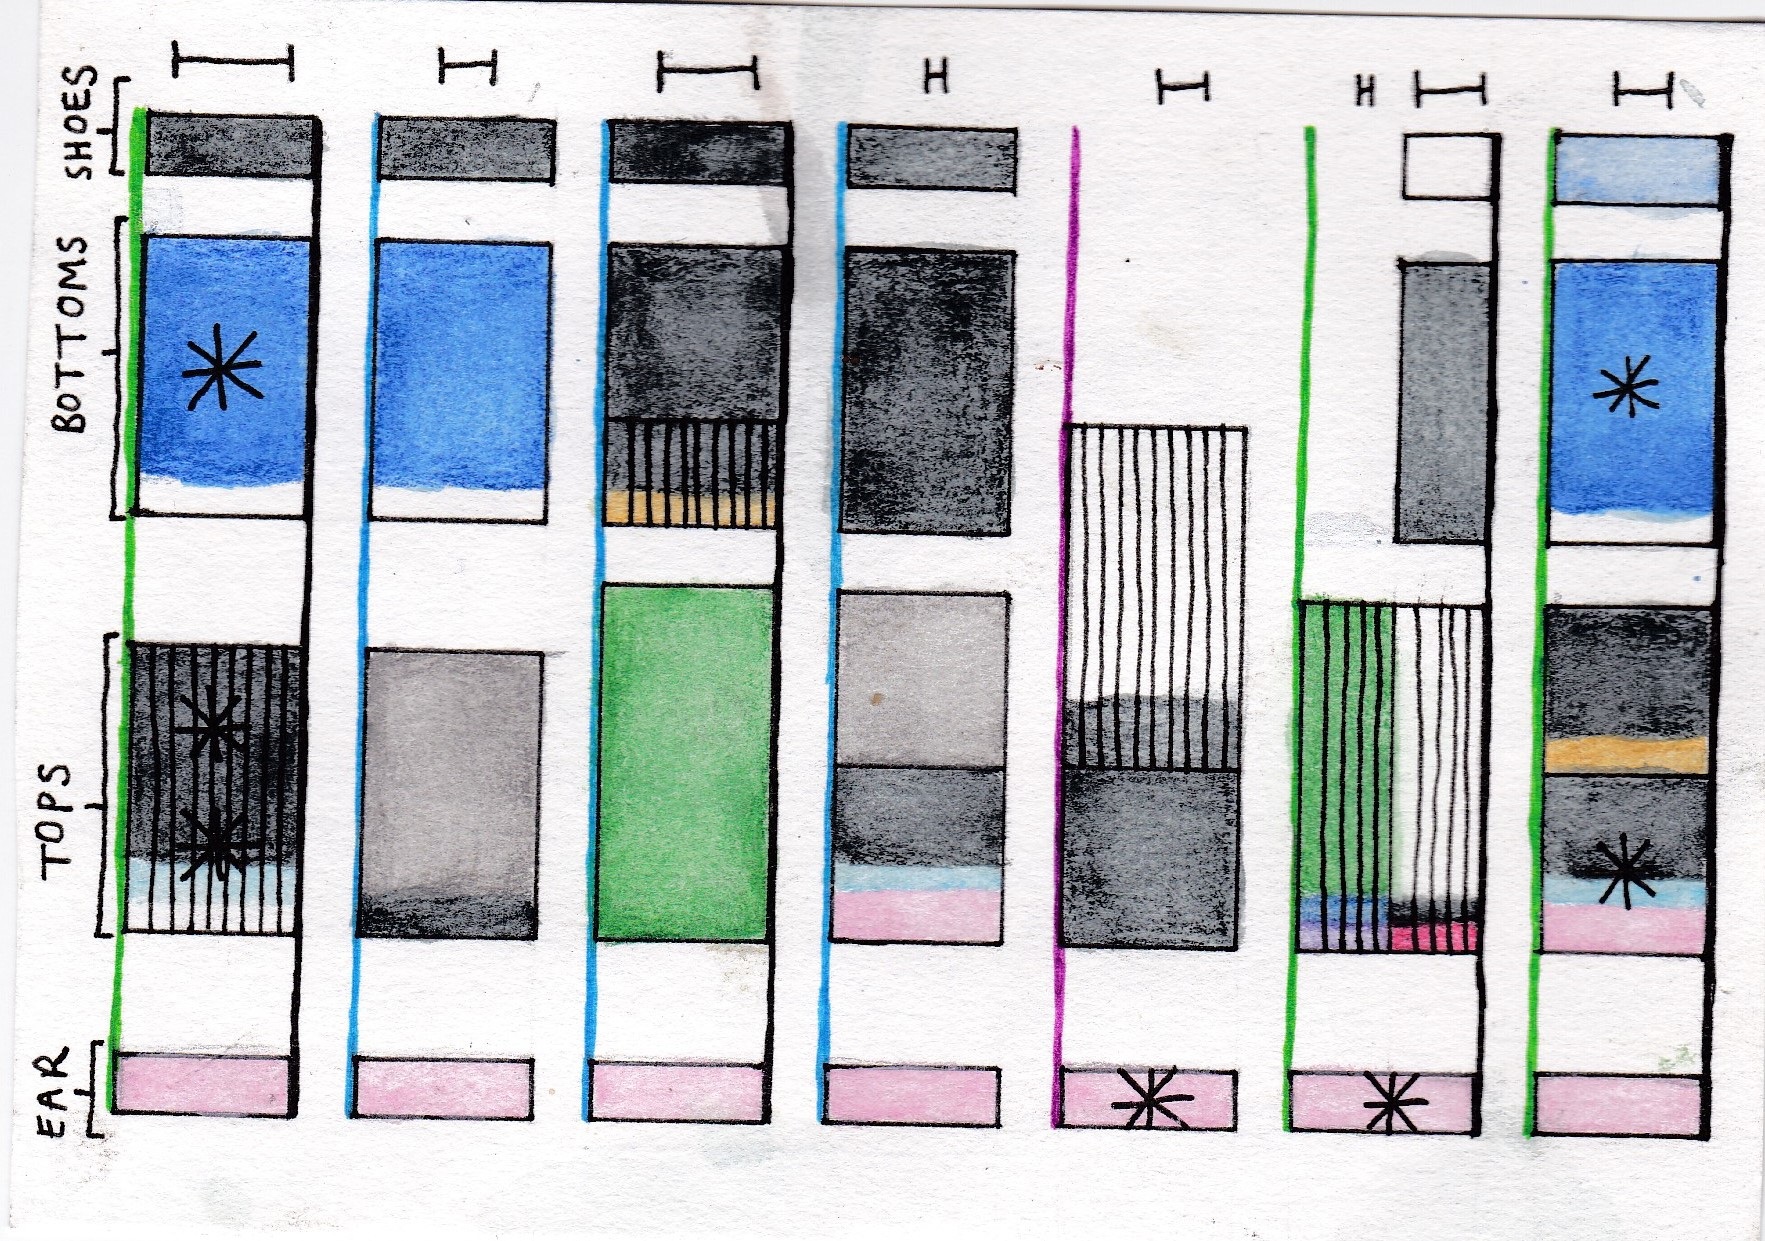 EAR
TOPS
BOTTOMS
SHOES